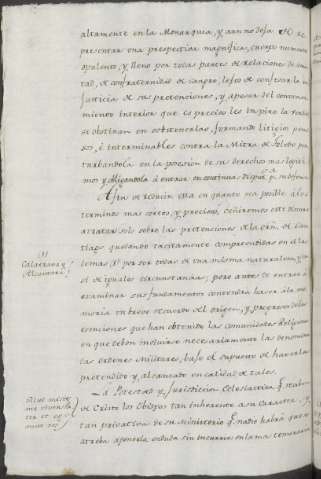 altamente en la Monarquia, y aun no deja de re
presentar una prespectiva magnifica, cuerpo numeroso
opulento, y lleno por todas partes de relaciones de amis
tad, de confraternidad de sangre, lejos de confesar la in
justicia de sus pretenciones, y apesar del convenci
miento interior que es preciso les inspire la verdad
se obstinan en sobstenerlas, formando litigios
é interminables contra la Mitra de Toledo per
turbandola en la posesión de sus derechos mas legiti
mos y obligandola á entrar en continuas disputas
A fin de reducir esta en quanto sea posible á los
terminos mas cortos, y precisos, ceñiremos este
a tratar solo sobre las pretensiones de la orn. de San
tiago quedando tacitamente comprendidas en el las
demas por ser todas de una misma naturaleza, y
de iguales circunstancias; pero antes de entrar á
examinar sus fundamentos convendrá hacer á la me
moria un breve recuerdo del origen, y progresos de las
esenciones que han obtenido las comunidades Religiosas
en que deben incluirse necesariamente las denomina
das ordenes Militares, bajo el supuesto de haverlas
pretendido y alcanzado en calidad de tales.
La Potestad, y Jurisdicion Eclesiastica q.e
de Cristo los Obispos tan inherente a su Caracter, y
tan privativa de su Ministerio q.e nadie habrá que se
atreba aponerla enduda sin incurrir en la nota
Calatrava y
Alcantara